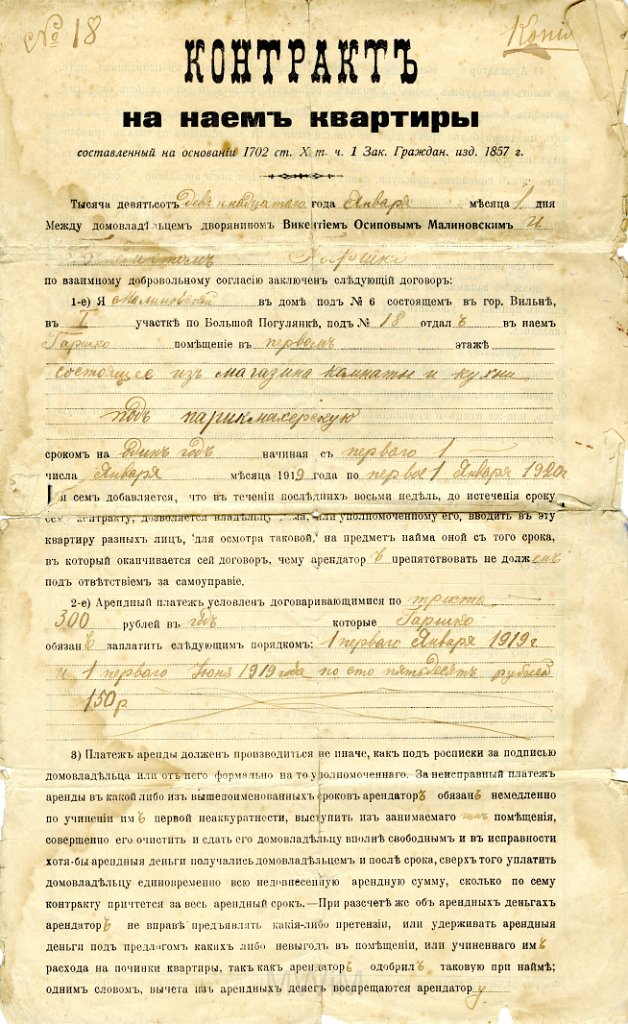 № 18
Копія
КОНТРАКТЪ
на наемъ квартиры
составленный на основаніи 1702 ст. X т. ч. 1 Зак. Граждан. изд. 1857 г.
Тысяча девятьсот девятнадцатаго года Января мѣсяца 1 дня
Между домовладѣльцем дворянином Викентіем Осиповым Малиновским и
Гаршко
по взаимному добровольному согласію заключен слѣдующій договор:
1-е) Я Малиновскій в домѣ под № 6 состоящем в гор. Вильнѣ,
в I участкѣ по Большой Погулянкѣ, под № 18 отдал ъ в наем
Гаршко помѣщеніе в первомъ этажѣ
состоящее изъ магазина комнаты и кухни
подъ парикмахерскую
сроком на одинъ годъ начиная с перваго 1
числа Января мѣсяца 1919 года по первое 1 Января 1920 г
К сем добавляется, что в теченіи послѣдних восьми недѣль, до истеченія сроку
сему контракту, дозволяется владѣльцу дома, или уполномоченному его, вводить в эту
квартиру разных лиц, для осмотра таковой, на предмет найма оной с того срока,
в который оканчивается сей договор, чему арендатор ъ препятствовать не должен ъ
под отвѣтствіем за самоуправіе.
2-е) Арендный платеж условлен договаривающимися по триста
300 рублей в годъ которые Гаршко
обязан ъ заплатить слѣдующим порядком: 1 перваго Января 1919 г
и 1 перваго Іюня 1919 года по сто пятьдесятъ рублей
150 р
3) Платеж аренды должен производиться не иначе, как под росписки за подписью
домовладѣльца или от него формально на то уполномоченнаго. За неисправный платеж
аренды в какой либо из вышепоименованных сроков арендатор ъ обязан ъ немедленно
по учиненіи им ъ первой неаккуратности, выступить из занимаемаго им помѣщенія,
совершенно его очистить и сдать его домовладѣльцу вполнѣ свободным и в исправности
хотя-бы арендныя деньги получались домовладѣльцем и послѣ срока, сверх того уплатить
домовладѣльцу единовременно всю недовнесенную арендную сумму, сколько по сему
контракту причтется за весь арендный срок.—При разсчетѣ же об арендных деньгах
арендатор ъ не вправѣ предъявлять какія-либо претензіи, или удерживать арендныя
деньги под предлогом каких либо невыгод в помѣщеніи, или учиненнаго им ъ
расхода на починки квартиры, так как арендатор ъ одобрил ъ таковую при наймѣ;
одним словом, вычета из арендных денег воспрещаются арендатор у